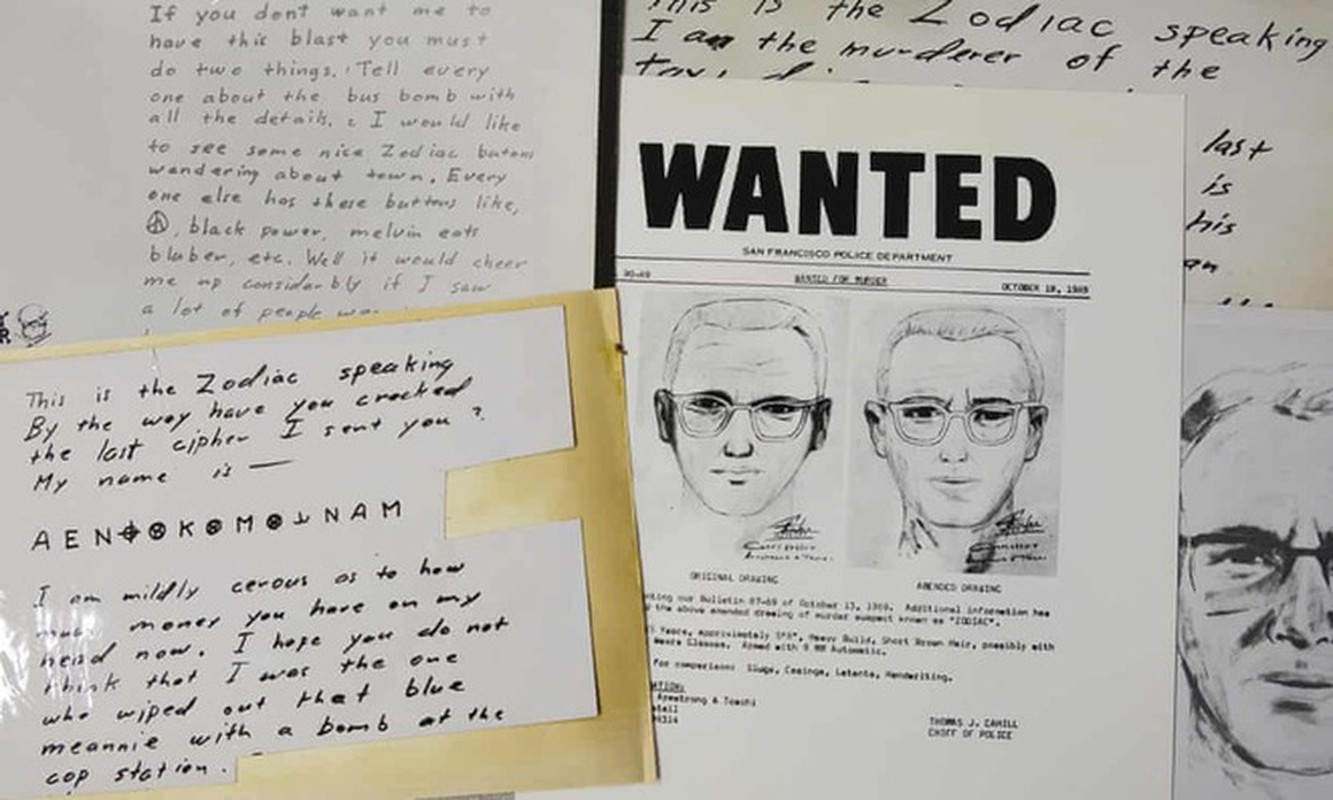 If you dont want me to
have this blast you must
do two things. Tell every
one about the bus bomb with
all the details. I would like
to see some nice Zodiac butons
wandering about town. Every
one else has these buttons like,
, black power, melvin eats
bluber, etc. Well it would cheer
me up considerbly if I saw
a lot of people
This is the Zodiac speaking
By the way have you cracked
the last cipher I sent you ?
My name is —
A E N ⌖ ⊗ K ⊗ M ⊗ ⅃ N A M
I am mildly cerous as to how
much money you have on my
head now. I hope you do not
think that I was the one
who wiped out that blue
meannie with a bomb at the
cop station.
This is the Zodiac speaking
I am the murderer of the
last
is
his
an
WANTED
SAN FRANCISCO POLICE DEPARTMENT
90-69 WANTED FOR MURDER OCTOBER 18, 1969
ORIGINAL DRAWING AMENDED DRAWING
our Bulletin 87-69 of October 13, 1969. Additional information has
the above amended drawing of murder suspect known as "ZODIAC".
Years, Approximately 5'8", Heavy Build, Short Brown Hair, possibly with
Wears Glasses. Armed with 9 MM Automatic.
for comparison: Slugs, Casings, Latents, Handwriting.
Armstrong & Toschi
THOMAS J. CAHILL
CHIEF OF POLICE